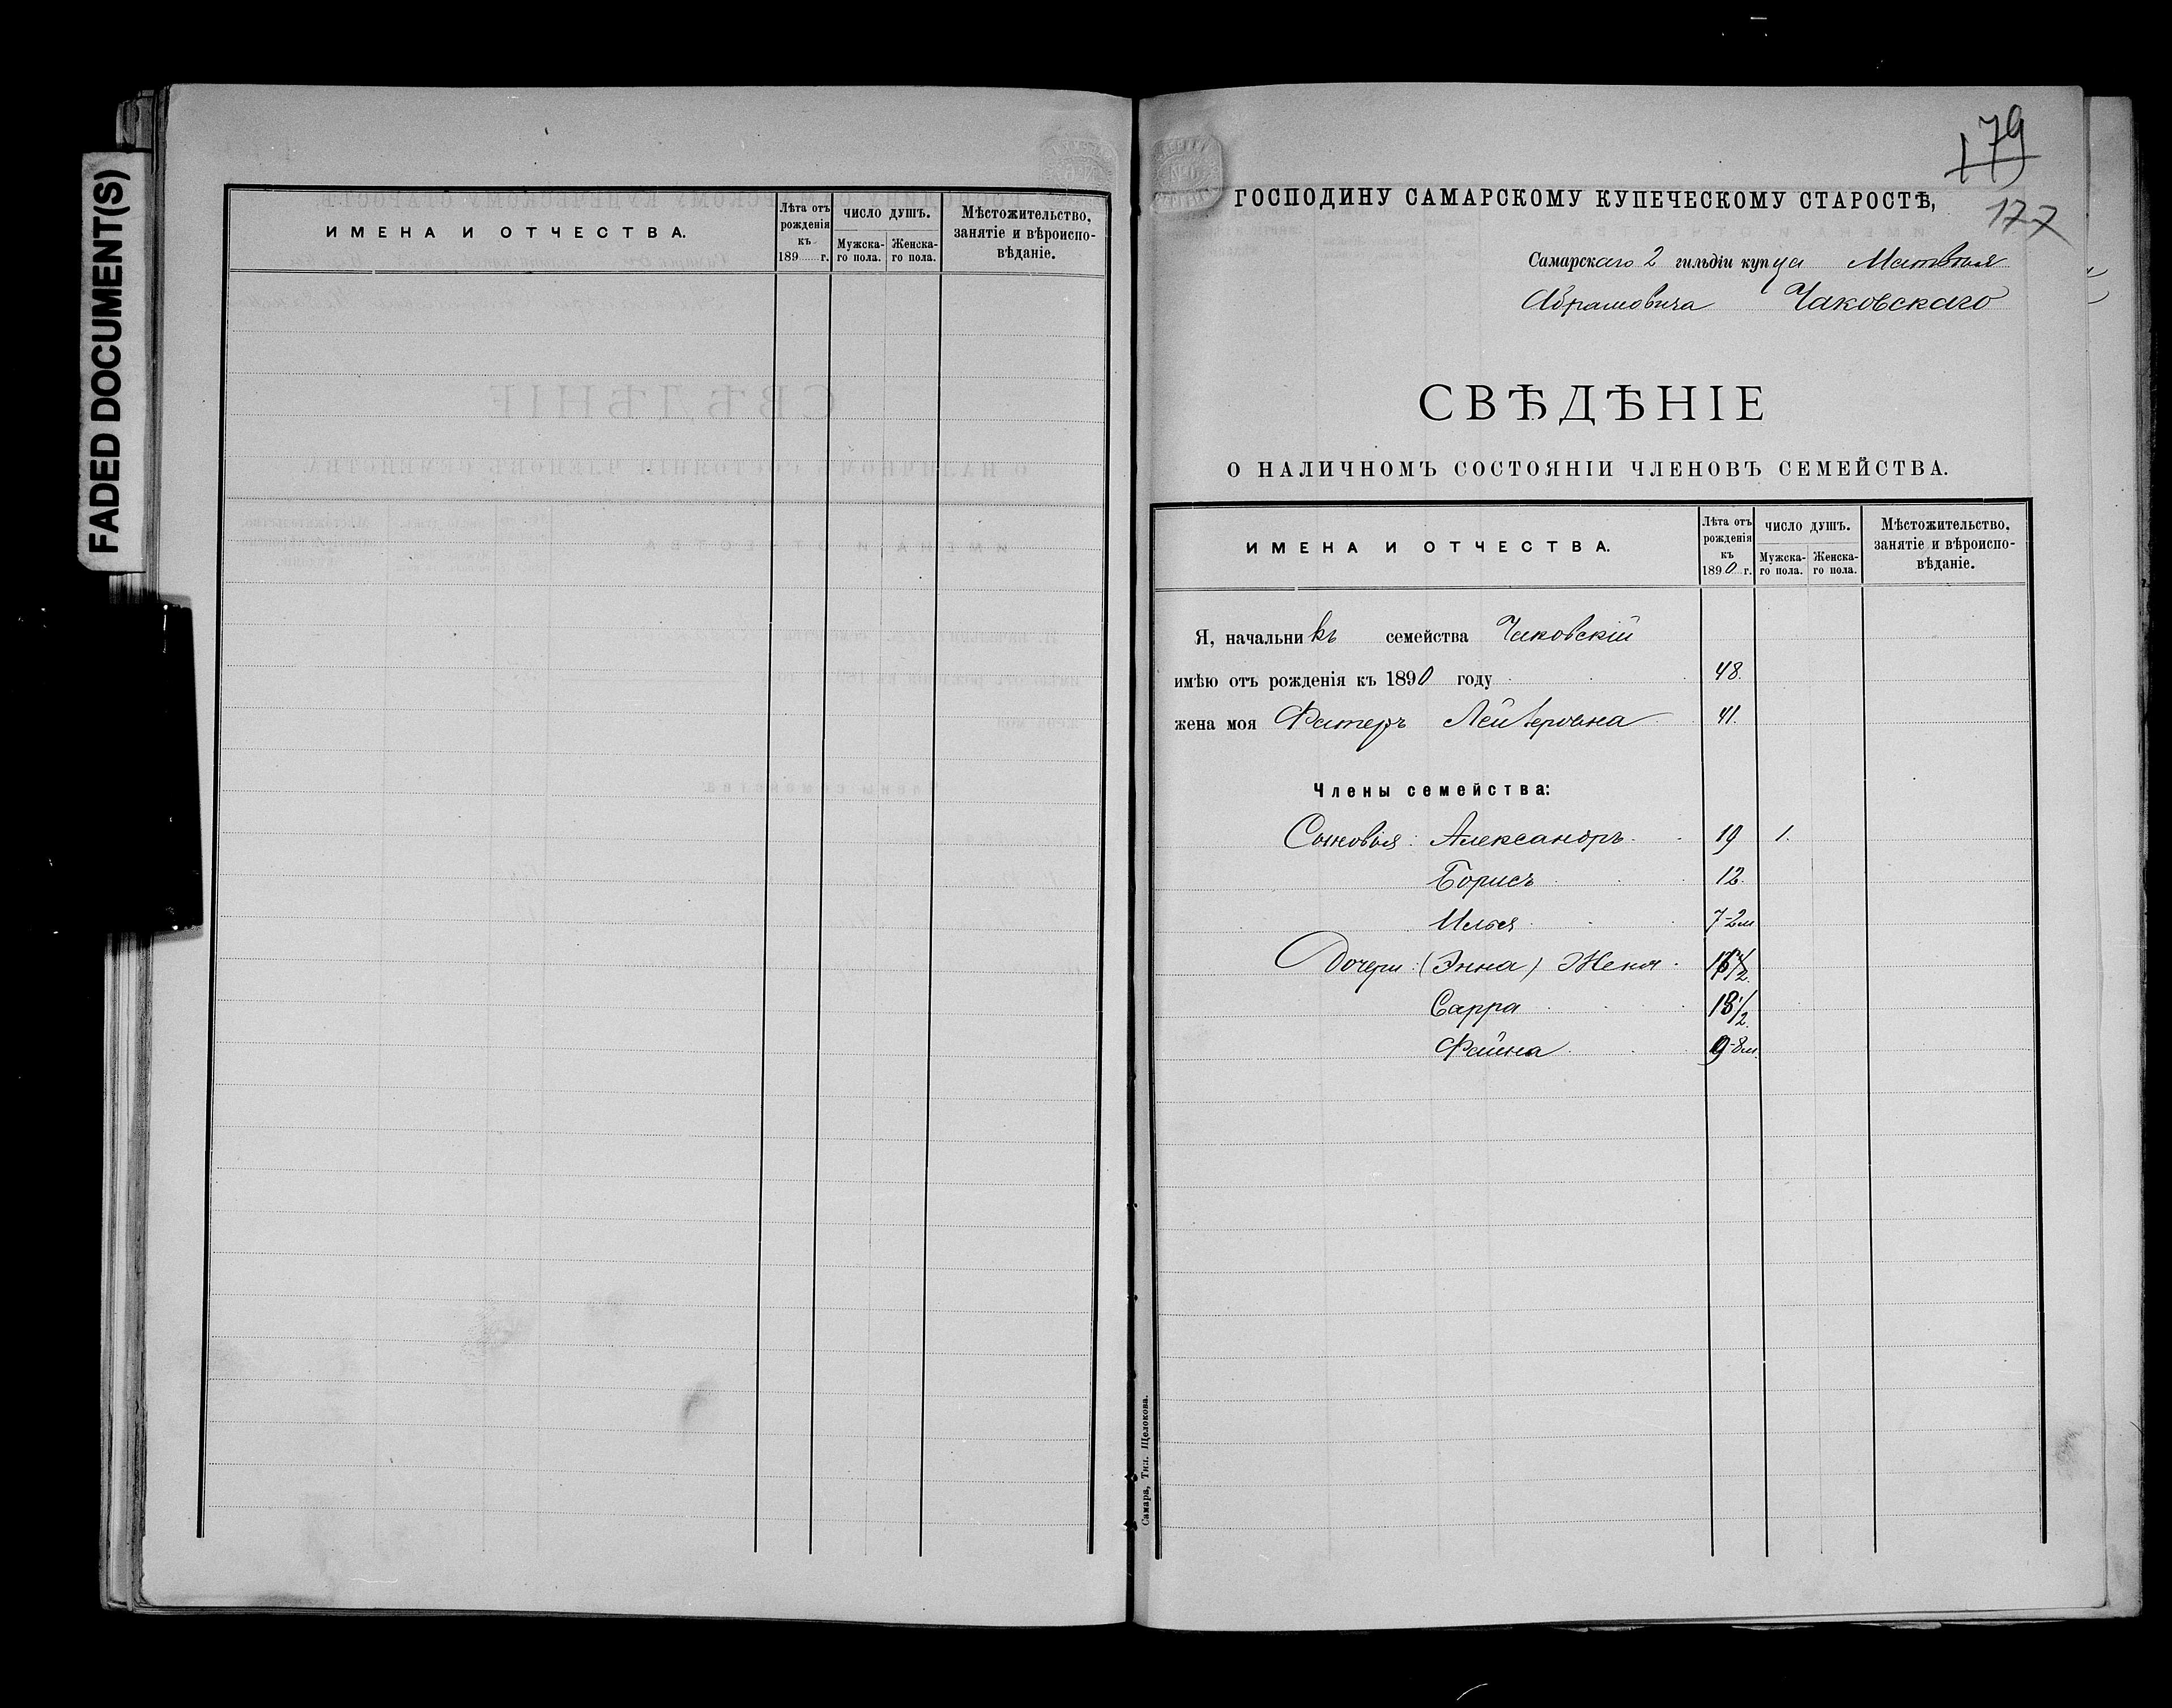 FADED DOCUMENT(S)
ИМЕНА И ОТЧЕСТВА.
Лѣта отъ рожденія къ 189 г.
ЧИСЛО ДУШЪ.
Мужска-го пола.
Женска-го пола.
Мѣстожительство, занятіе и вѣроиспо-вѣданіе.
179
177
ГОСПОДИНУ САМАРСКОМУ КУПЕЧЕСКОМУ СТАРОСТѢ,
Самарскаго 2 гильдіи купца Матвѣя
Абрамовича Чаковскаго
СВѢДѢНІЕ
О НАЛИЧНОМЪ СОСТОЯНІИ ЧЛЕНОВЪ СЕМЕЙСТВА.
ИМЕНА И ОТЧЕСТВА.
Лѣта отъ рожденія къ 1890 г.
ЧИСЛО ДУШЪ.
Мужска-го пола.
Женска-го пола.
Мѣстожительство, занятіе и вѣроиспо-вѣданіе.
Я, начальникъ семейства Чаковскій
имѣю отъ рожденія къ 1890 году 48.
жена моя 41.
Члены семейства:
Сыновья: Александръ 19 1.
Борисъ 12.
Илья 7-2м
Дочери: (Энна) Женя
Сарра 13 1/2.
Фаина 9-8м.
Самара, Тип. Щелокова.